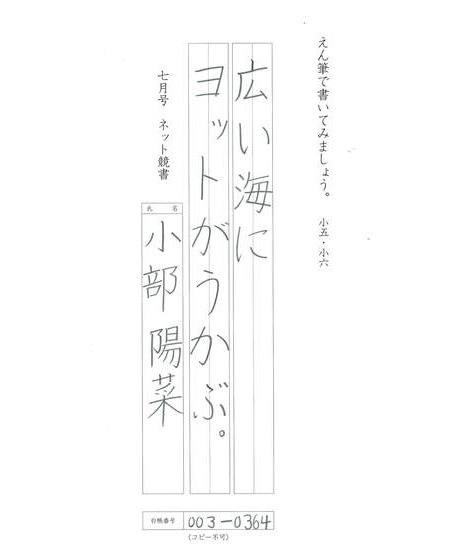 えん筆で書いてみましょう。 小五・小六
広い海に
ヨットがうかぶ。
七月号 ネット競書
氏名
小部陽菜
台帳番号 003-0364
(コピー不可)